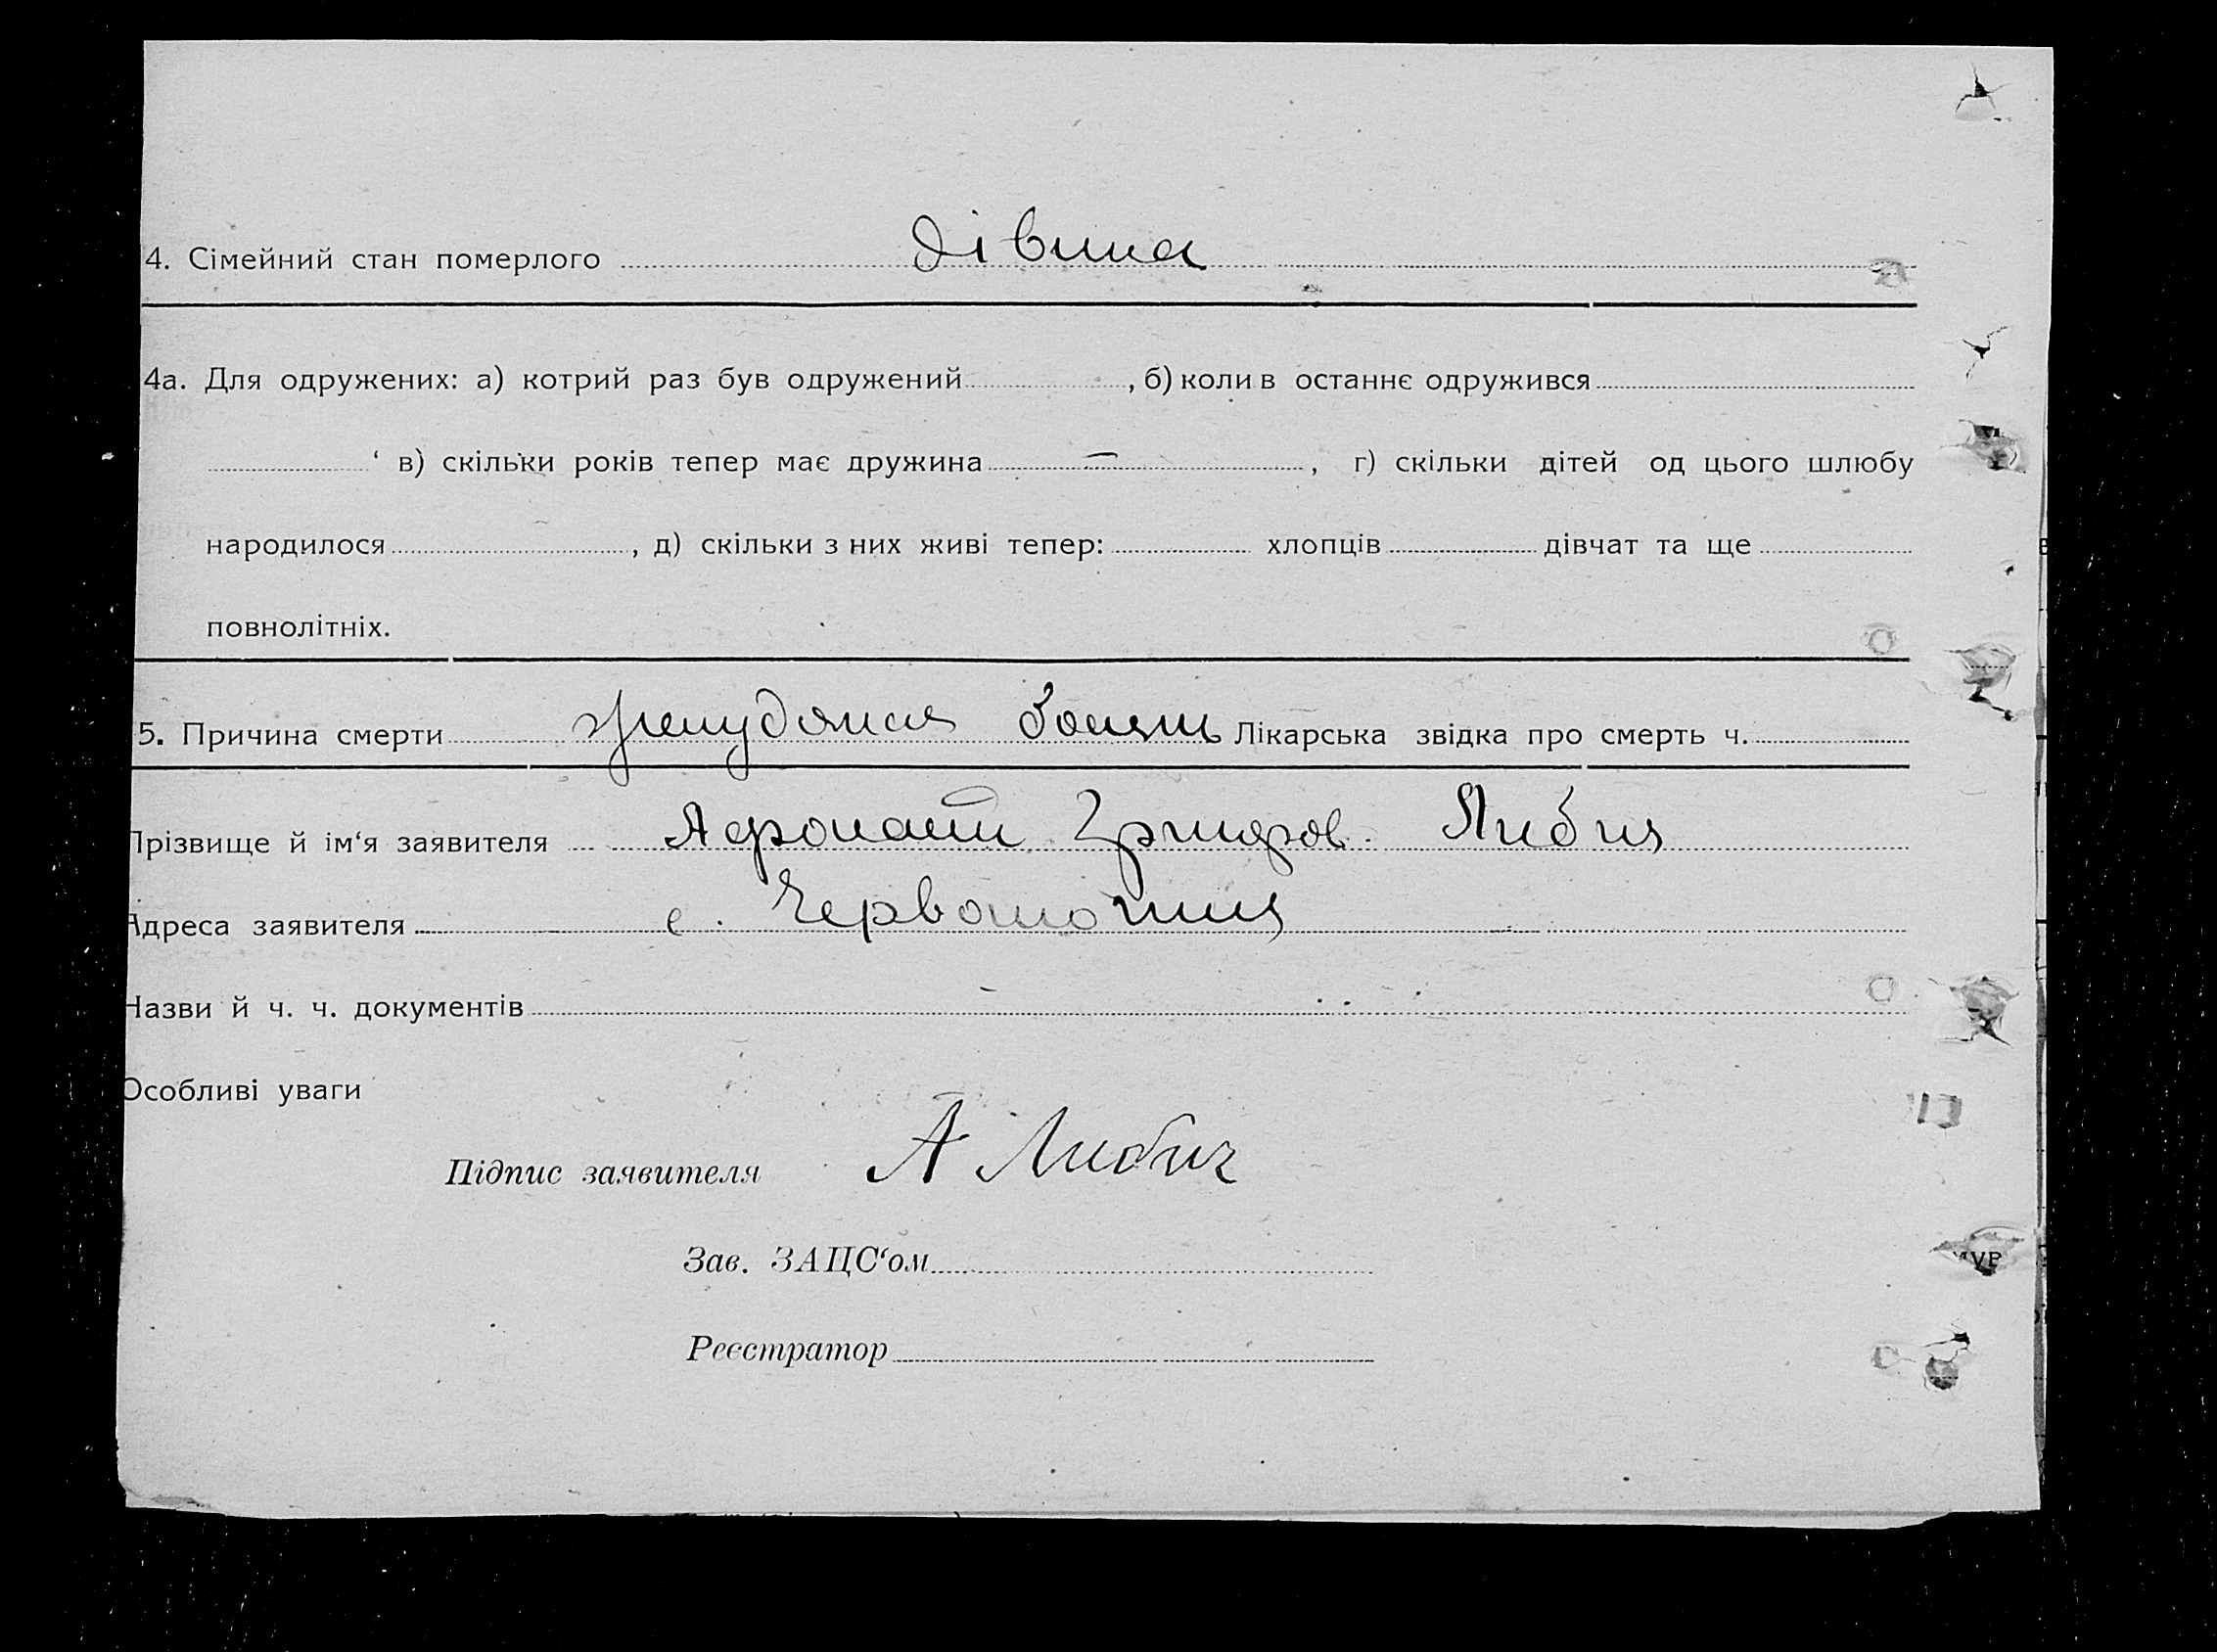 4. Сімейний стан померлого дівина
4а. Для одружених: а) котрий раз був одружений , б) коли в останнє одружився
‘ в) скільки років тепер має дружина — , г) скільки дітей од цього шлюбу
народилося , д) скільки з них живі тепер: хлопців дівчат та ще
повнолітніх.
5. Причина смерти Лікарська звідка про смерть ч.
Прізвище й ім‘я заявителя
Адреса заявителя с.
Назви й ч. ч. документів
Особливі уваги
Підпис заявителя А Либич
Зав. ЗАЦС‘ом
Реєстратор